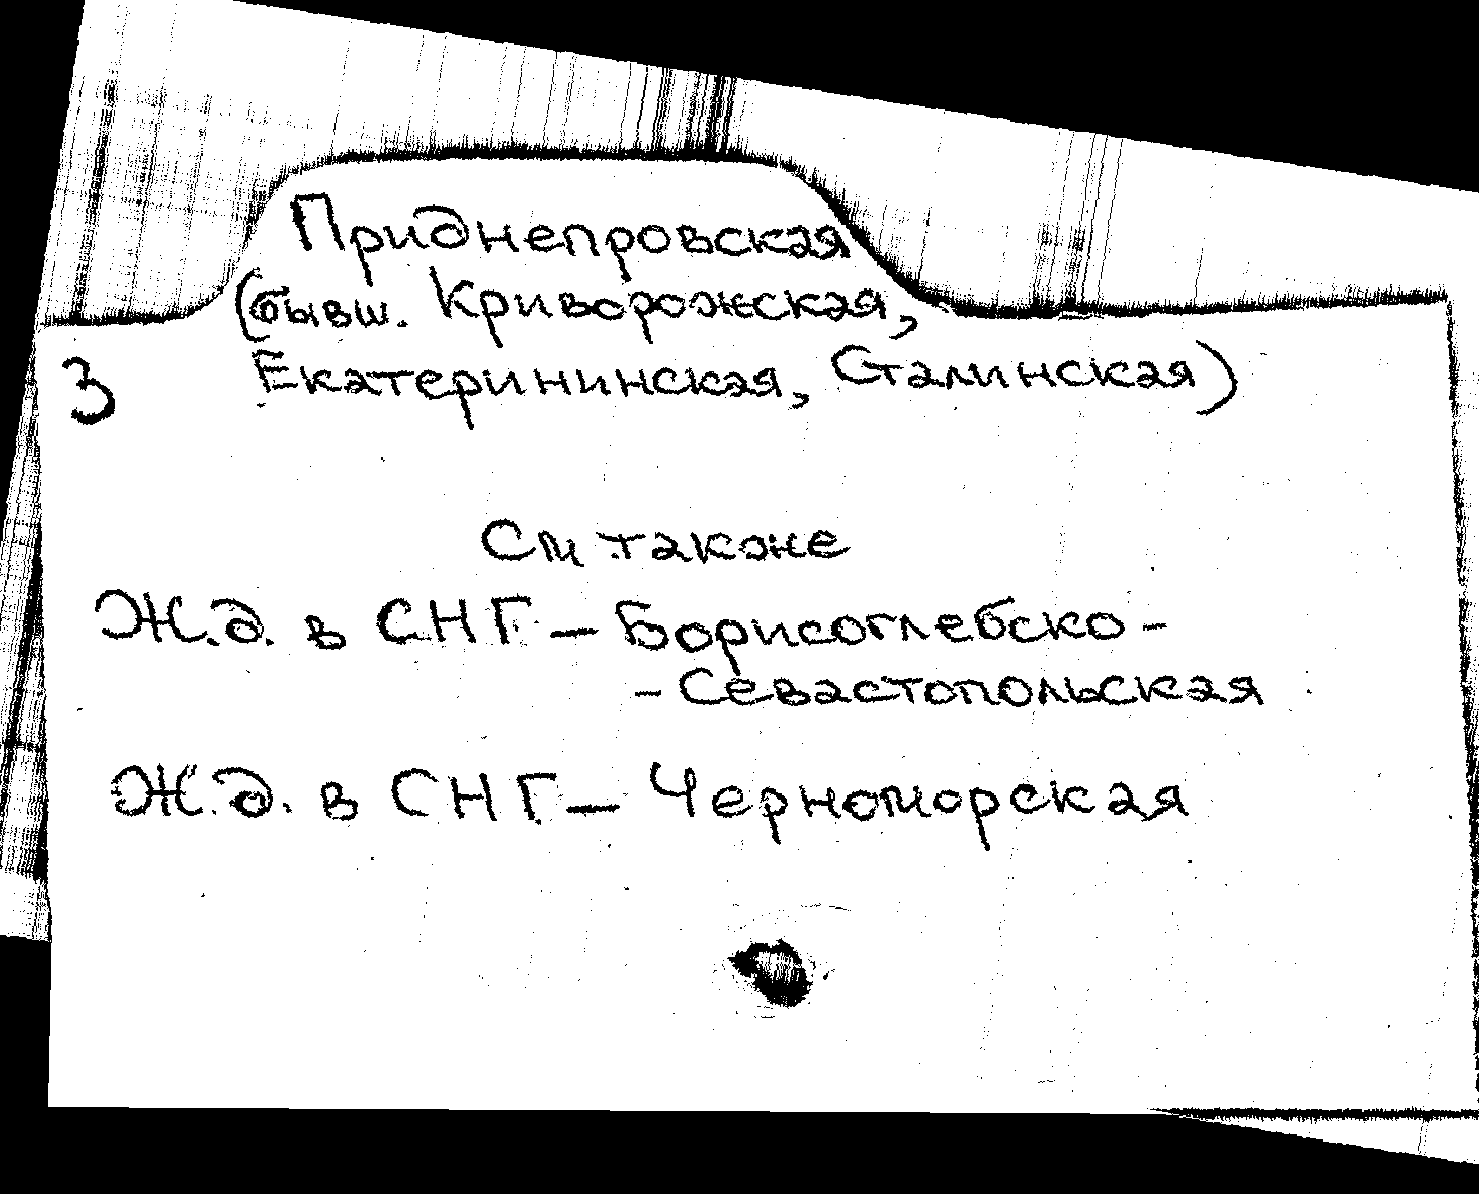 Приднепровская
(бывш. Криворожская,
3 Екатерининская, Сталинская)
См также
Ж.д. в СНГ – Борисоглебско-
- Севастопольская
Ж.д. в СНГ – Черноморская